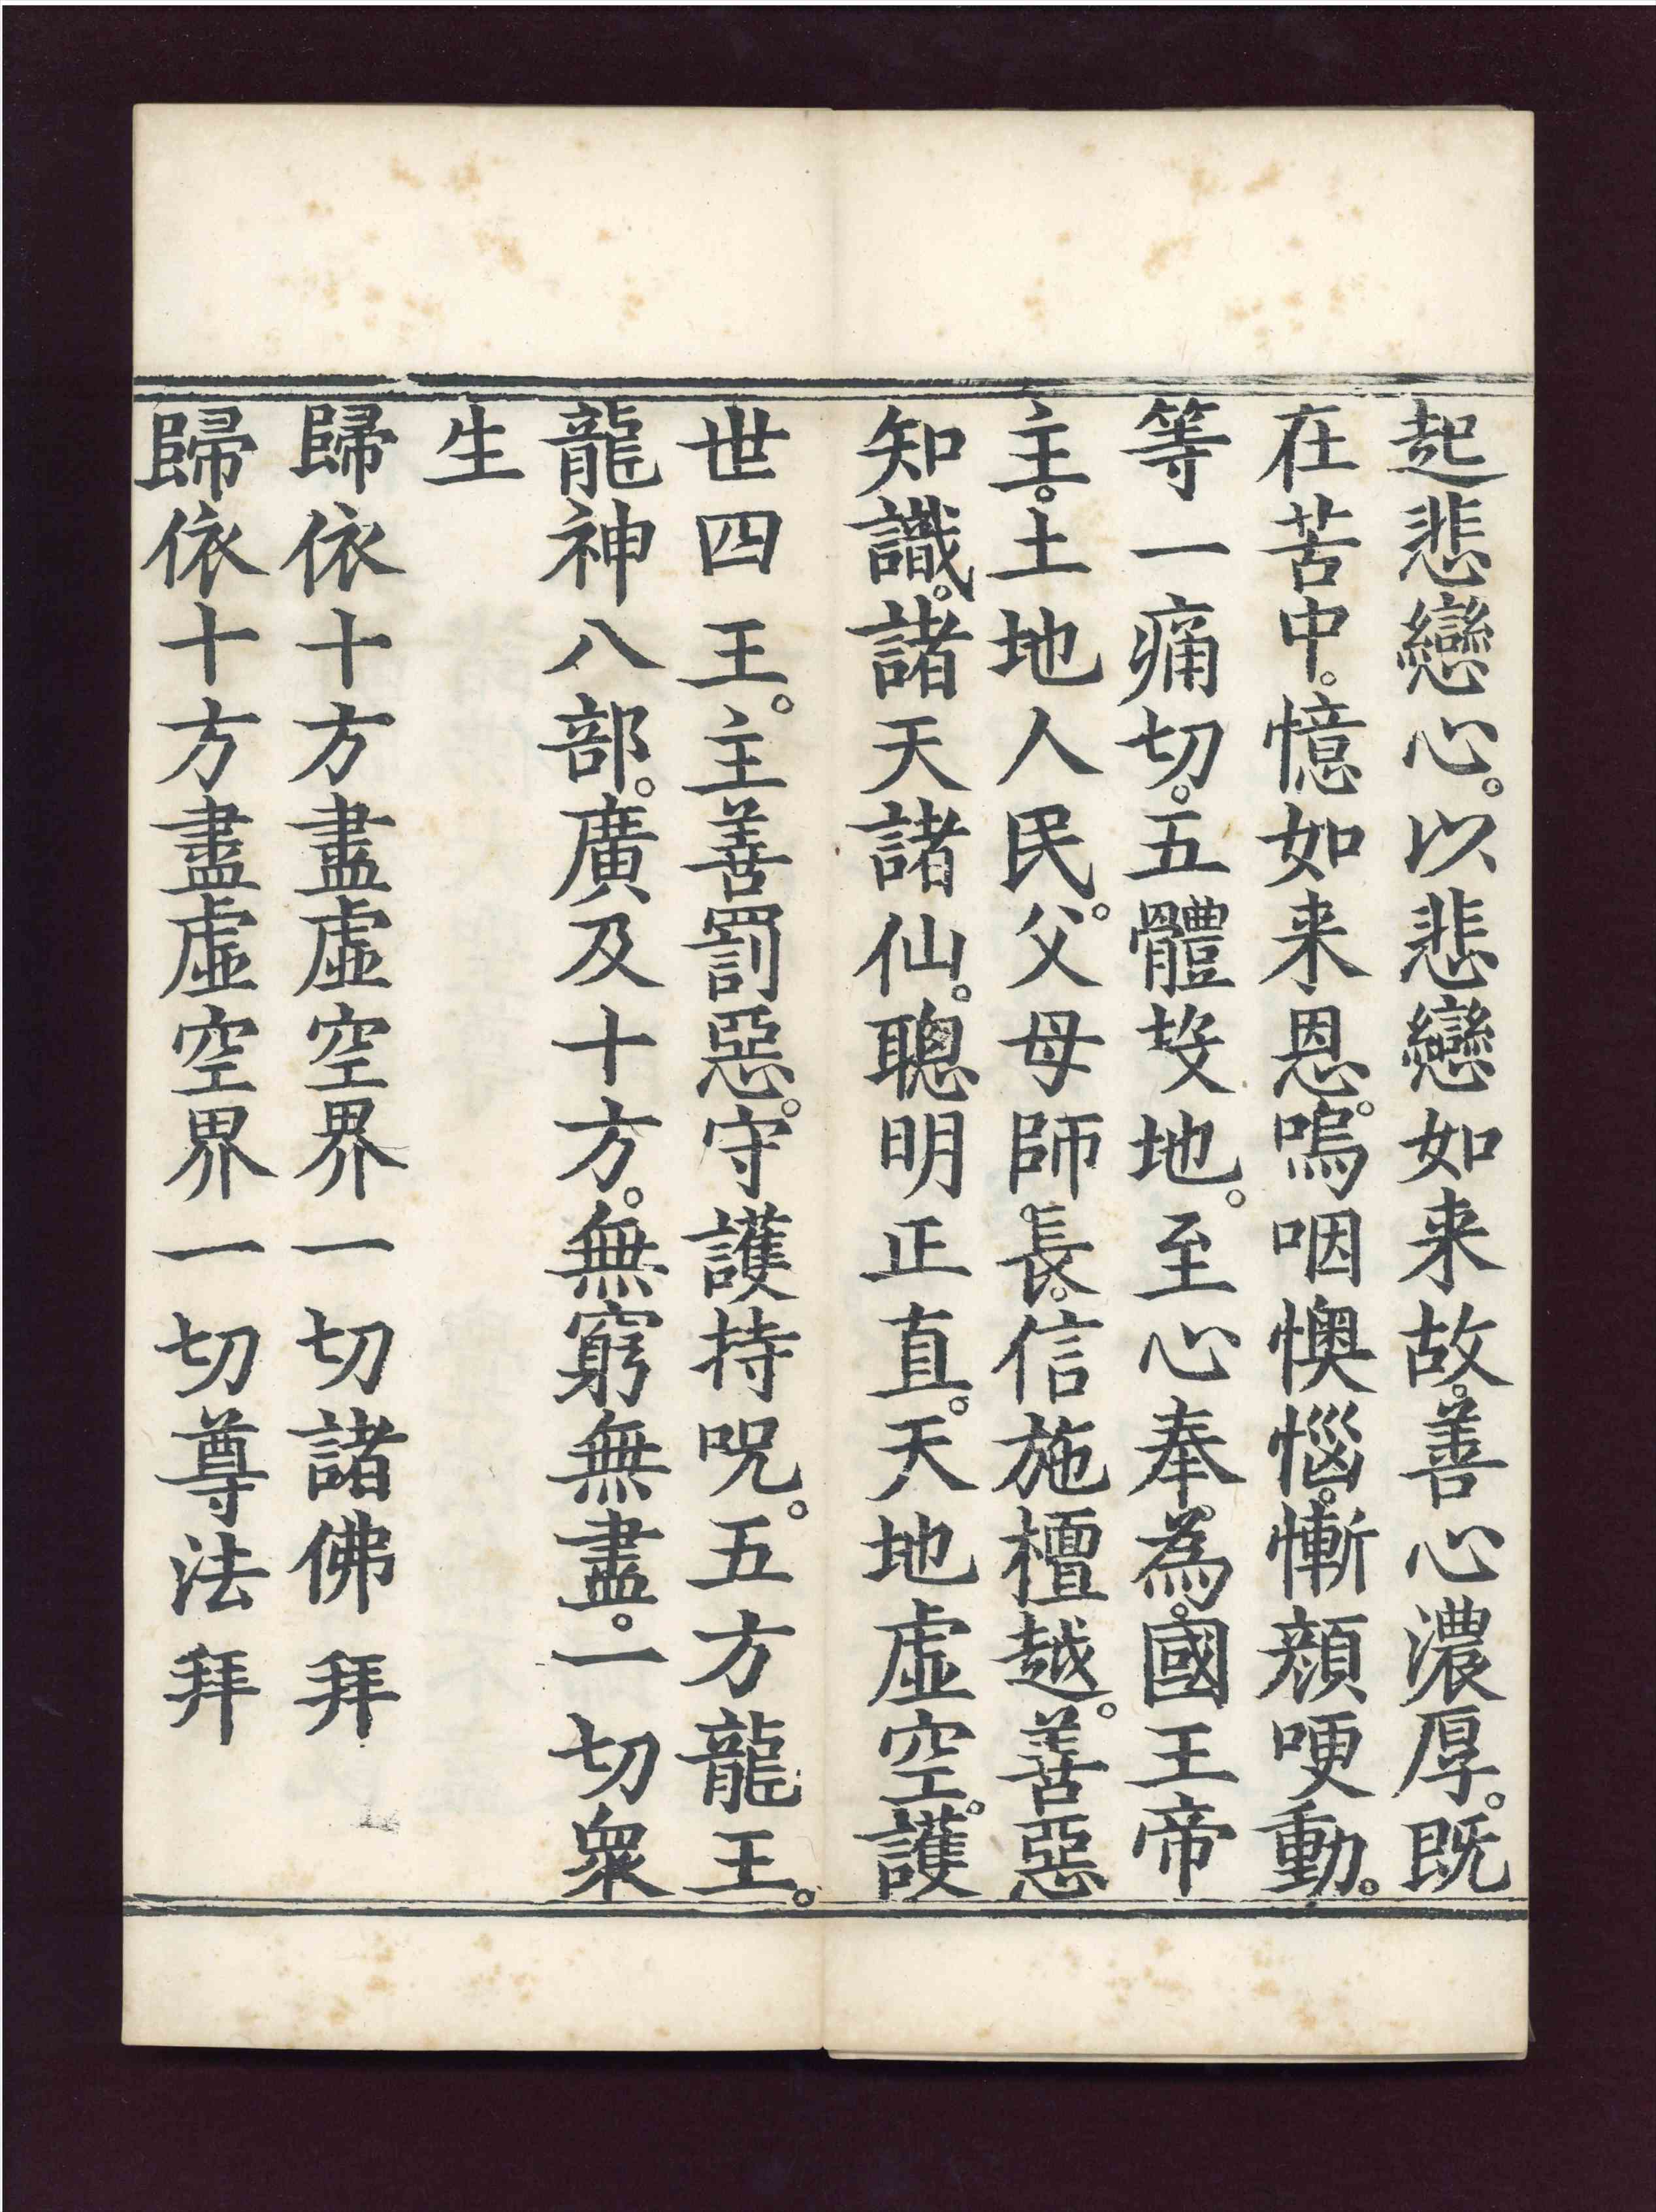 起悲戀心。以悲戀如来故。善心濃厚。既
在苦中。憶如来恩。嗚咽懊惱。慚顔哽動。
等一痛切。五體投地。至心奉。為。國王帝
主。土地人民。父母師。長。信施檀越。善惡
知識。諸天諸仙。聰明正直。天地虛空。護
世四王。主善罰惡。守護持呪。五方龍王。
龍神八部。廣及十方。無窮無盡。一切衆
生
歸依十方盡虛空界一切諸佛 拜
歸依十方盡虛空界一切尊法 拜